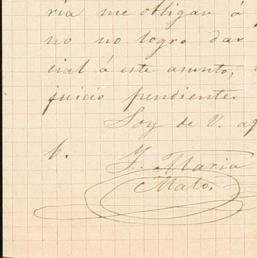 ria me obligan á
no no logro dar
cial á este asunto,
juicio pendiente.
Soy de V. af
J. Maria
Mato.